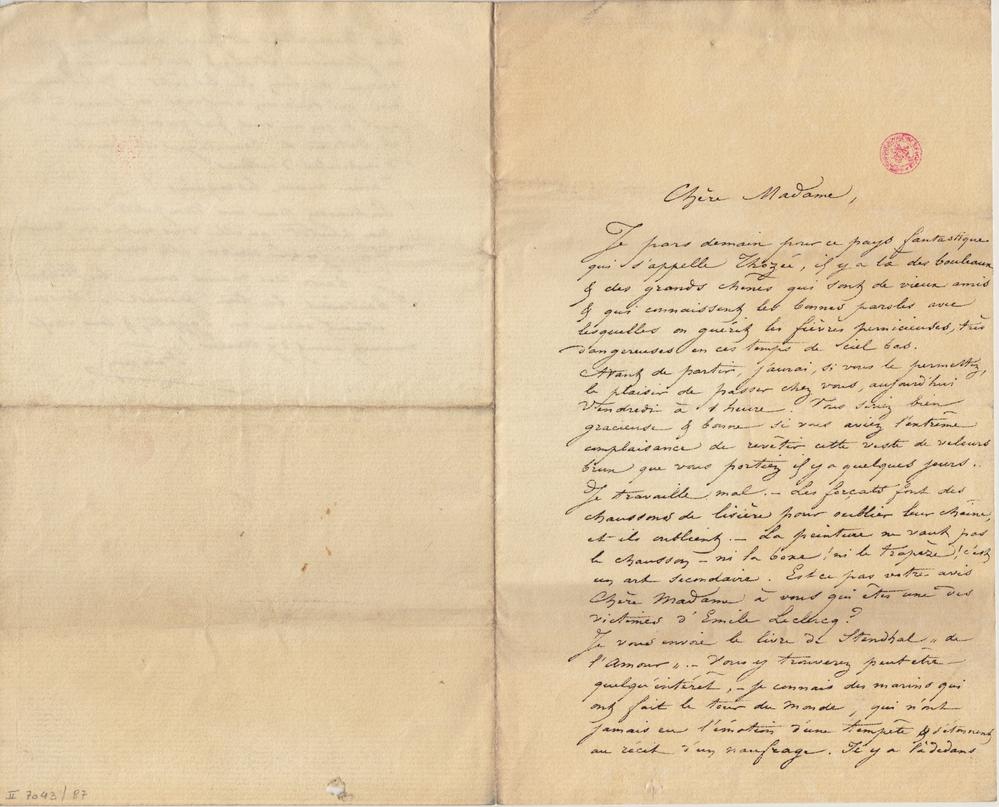 Chère Madame,
Je pars demain pour ce pays fantastique
qui s'appelle Thozée, il y a là des bouleaux
& des grands chênes qui sont de vieux amis
& qui connaissent les bonnes paroles avec
lesquelles on guérit les fièvres pernicieuses, très
dangereuses en ces temps de ciel bas.
Avant de partir, j'aurai, si vous le permettez,
le plaisir de passer chez vous, aujourd'hui
Vendredi à 1 heure. Vous seriez bien
gracieuse & bonne si vous aviez l'extrême
complaisance de revêtir cette veste de velours
brun que vous portiez il y a quelques jours.
Je travaille mal. – Les forçats font des
chaussons de lisière pour oublier leur chaîne,
et ils oublient. – La peinture ne vaut pas
le chausson – ni la boxe ! ni le trapèze ! c'est
un art secondaire. Est ce pas votre avis
Chère Madame à vous qui êtes une des
victimes d'Emile Leclercq ?
Je vous envoie le livre de Stendhal „ de
l'Amour „. – Vous y trouverez peut être
quelqu'intérêt, – je connais des marins qui
ont fait le tour du monde, qui n'ont
jamais eu l'émotion d'une tempête & s'étonnent
au récit d'un naufrage. Il y a là dedans
II 7043 / 87